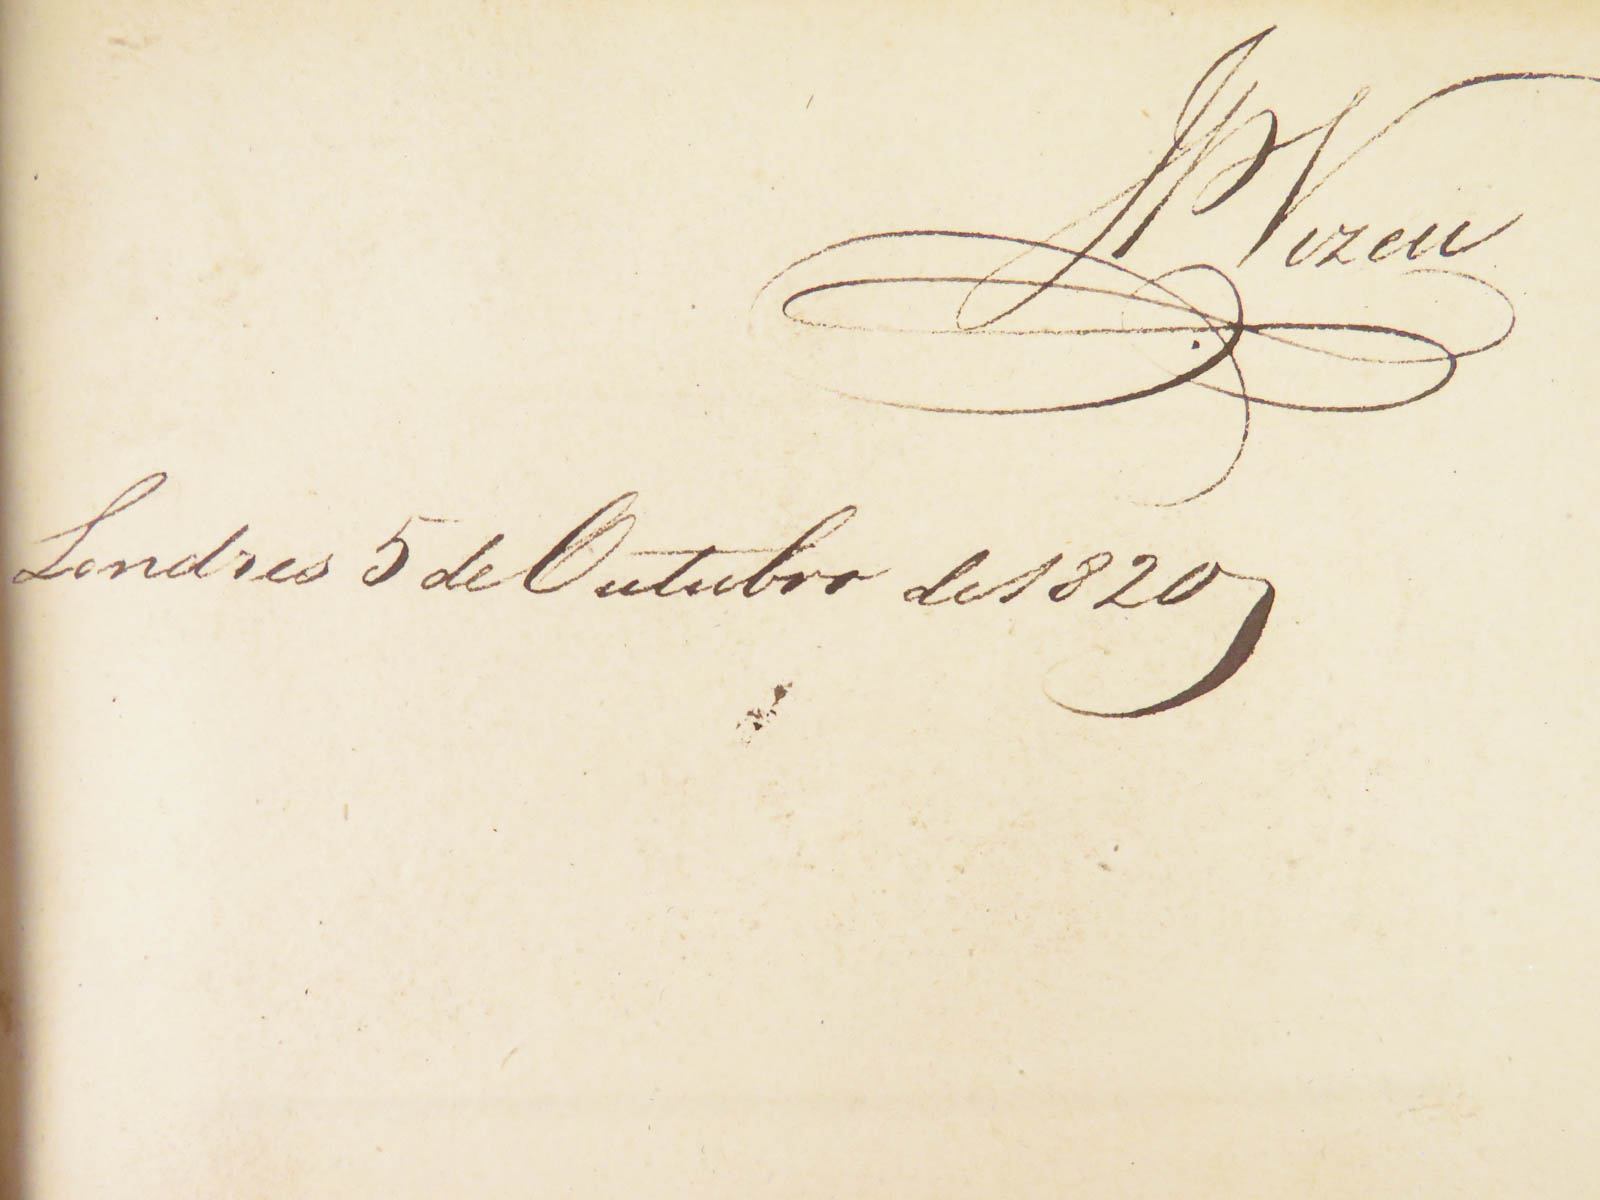 JP Vizeu
Londres 5 de Outubro de 1820